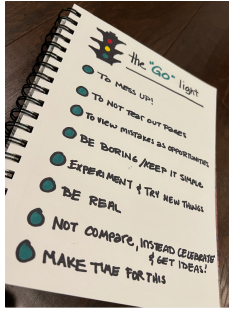 the "GO" light
TO MESS UP!
TO NOT TEAR OUT PAGES
TO VIEW MISTAKES AS OPPORTUNITIES
BE BORING / KEEP IT SIMPLE
EXPERIMENT & TRY NEW THINGS
BE REAL
NOT COMPARE, INSTEAD CELEBRATE
& GET IDEAS!
MAKE TIME FOR THIS